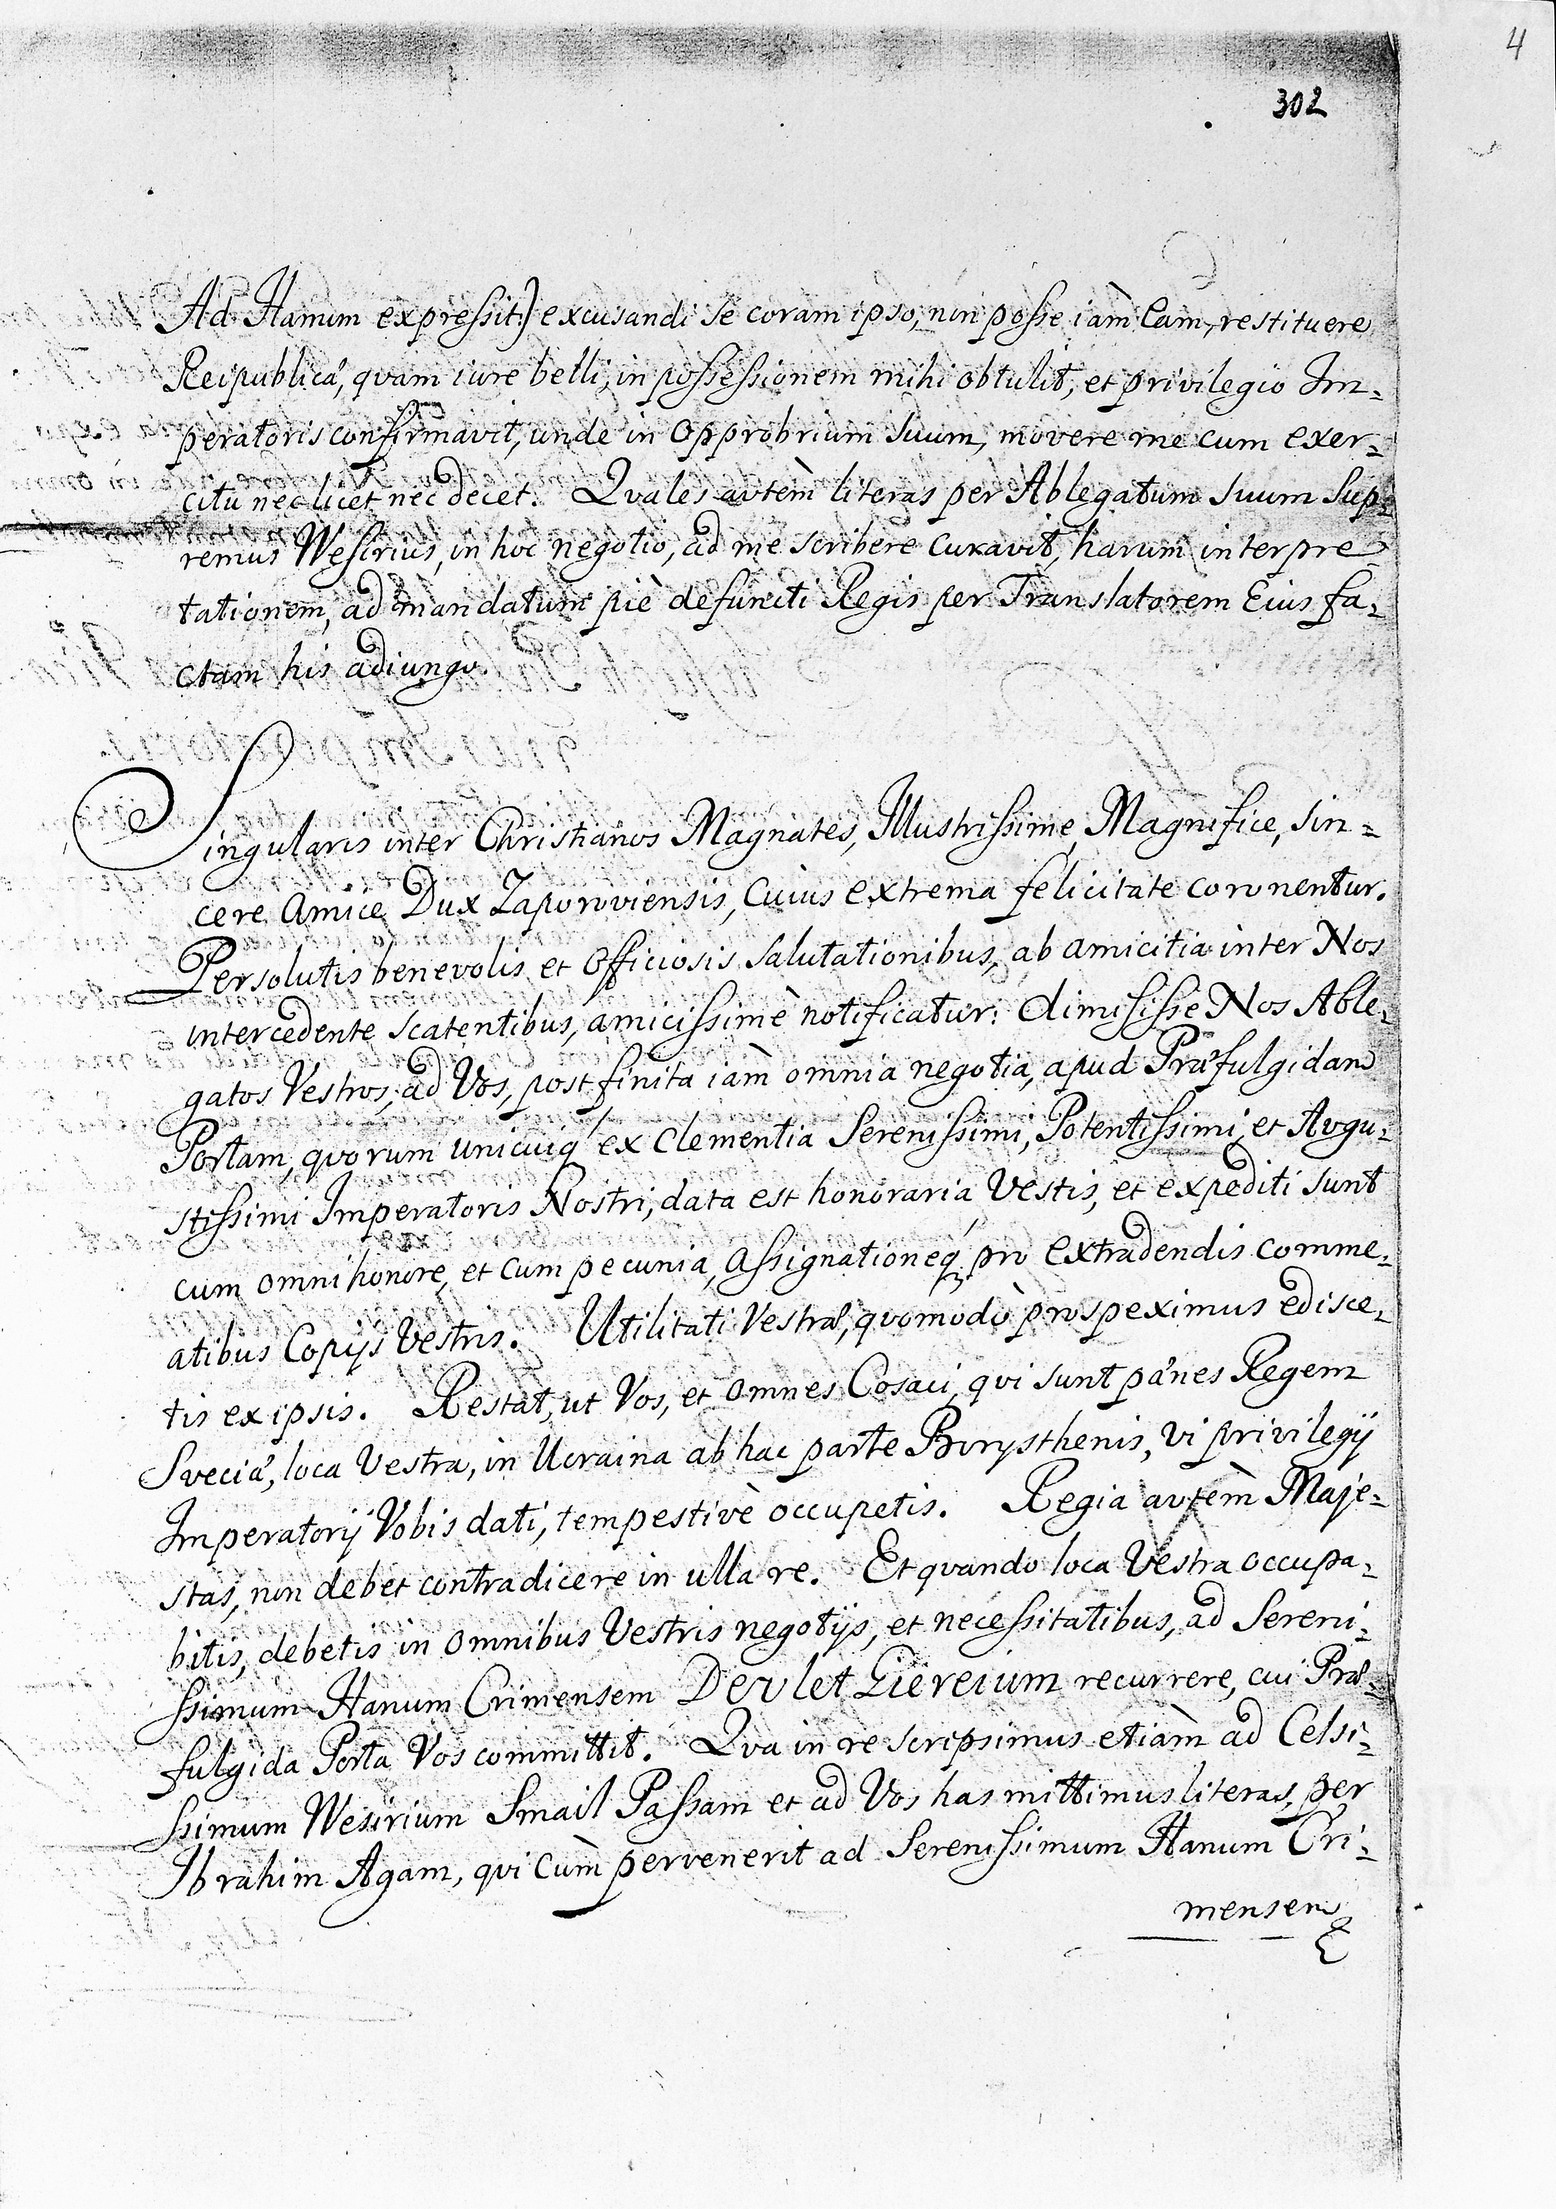 4
302
Ad Hanum expressit) excusandi se coram ipso, non posse iàm Eam, restituere
Reipublicæ, quam iure belli, in possessionem mihi obtulit, et privilegio Im=
peratoris confirmavit, unde in opprobrium suum, movere me cum exer=
citu nec licet nec decet. Qvales autèm literas per Ablegatum suum Sup=
remus Wesirius, in hoc negotio, ad me scribere curavit, harum interpre=
tationem, ad mandatum piè defuncti Regis per Translatorem Eius fa=
ctam his adiungo.
Singularis inter Christianos Magnates, Illustrissime, Magnifice, sin=
cere Amice Dux Zaporoviensis, Cuius extrema felicitate coronentur.
Persolutis benevolis et officiosis salutationibus, ab amicitia inter Nos
intercedente scatentibus, amicissimè notificatur: dimisisse Nos Able=
gatos Vestros, ad Vos, post finita iàm omnia negotia, apud Præfulgidam
Portam, quorum unicuiq́ ex Clementia Serenissimi, Potentissimi, et Augu=
stissimi Imperatoris Nostri, data est honoraria Vestis, et expediti sunt
cum omni honore, et cum pecunia, assignationeq́ pro extradendis comme=
atibus Copijs Vestris. Utilitati Vestræ, quomodò prospeximus edisce=
tis ex ipsis. Restat, ut Vos, et omnes Cosaci, qui sunt pænes Regem
Sveciæ, loca Vestra, in Ucraina ab hac parte Borysthenis, vi privilegij
Imperatorij Vobis dati, tempestivè occupetis. Regia autèm Maje=
stas, non debet contradicere in ulla re. Et quando loca Vestra occupa=
bitis, debetis in omnibus Vestris negotijs, et necessitatibus, ad Sereni=
ssimum Hanum Crimensem Devlet Giereium recurrere, cui Præ=
fulgida Porta Vos committit. Qva in re scripsimus etiàm ad Celsi=
ssimum Wesirium Smail Passam et ad Vos has mittimus literas, per
Ibrahim Agam, qui cùm pervenerit ad Serenissimum Hanum Cri=
mensem